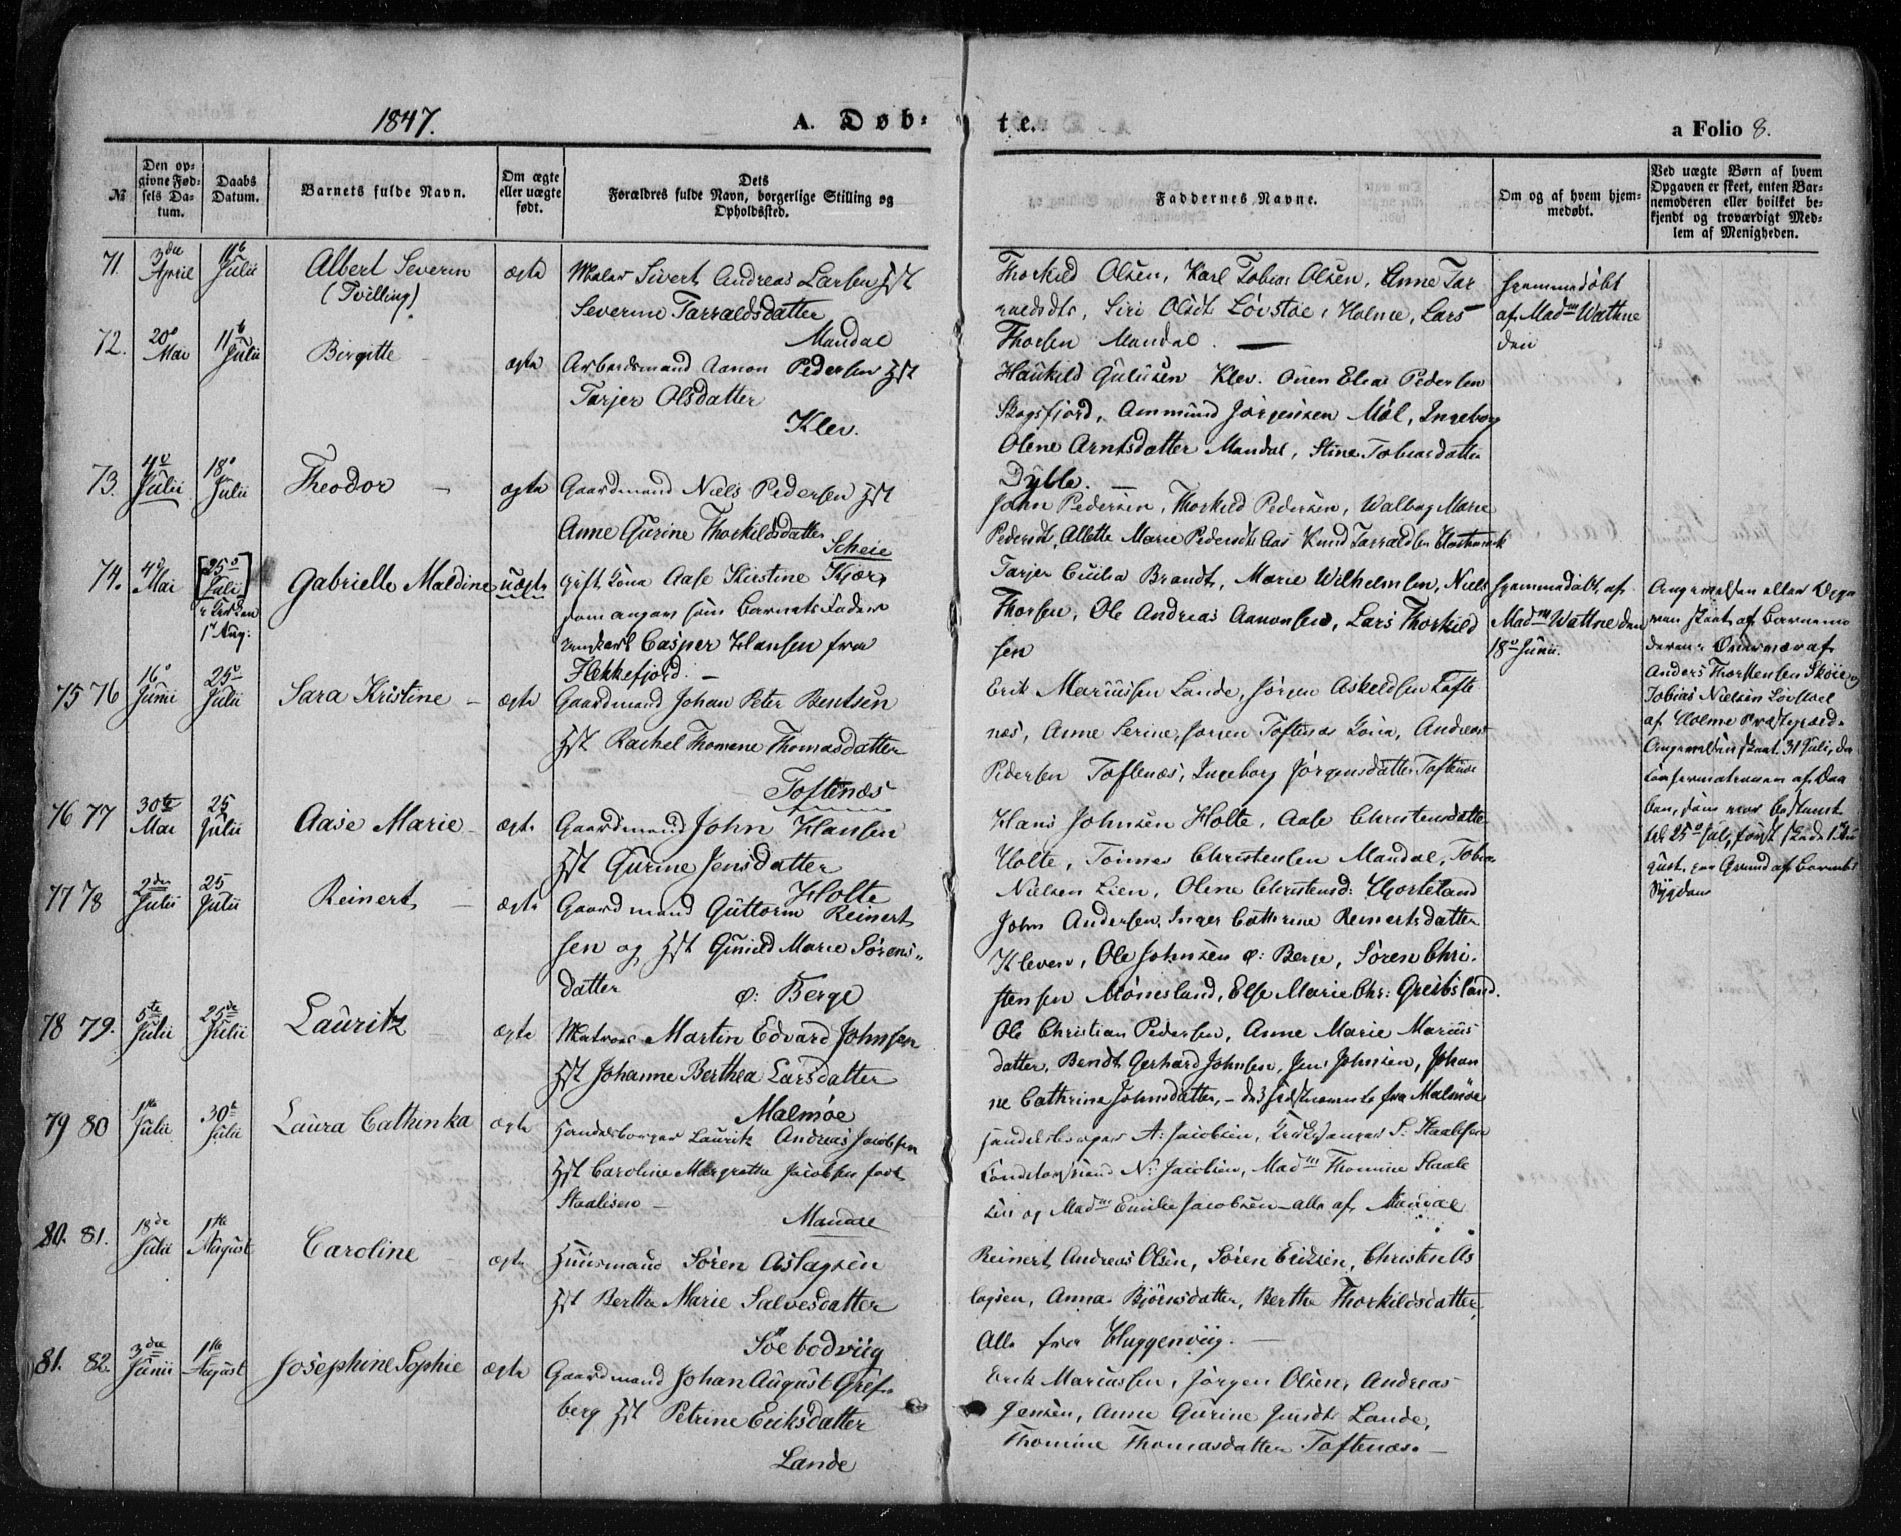 1847.
A. Døb-
te.
a Folio 8.
№
Den op-
givne Fød-
sels Da-
tum.
Daabs
Datum.
Barnets fulde Navn.
Om ægte
eller uægte
født.
Dets
Forældres fulde Navn, borgerlige Stilling og
Opholdssted.
Faddernes Navne.
Om og af hvem hjem-
medøbt.
Ved uægte Børn af hvem
Opgaven er skeet, enten Bar-
nemoderen eller hvilket be-
kjendt og troværdigt Med-
lem af Menigheden.
71.
3die
April
11te
Julii
Albert Severin
(Tvilling)
ægte
Maler Sivert Andreas Larsen Hst
Severine Tarraldsdatter
Mandal
Thorkild Olsen, Karl Tobias Olsen, Anne Tar
raldsdtr, Siri Olsdtr Løvstøe, Holme, Lars
Thorsen Mandal. —
hjemmedøbt
af Madm Wathne
den
72.
20de
Mai
11te
Julii
Birgitte
ægte
Arbeidsmand Aanon Pedersen Hst
Tarjer Olsdatter
Klev.
Haukild Gulufsen Klev. Elias Pedersen
Skogsfjord, Ammund Jørgensen Møl, Ingeborg
Olene Arntsdatter Mandal, Stine Tobiasdatter
Dyble. —
73.
4de
Julii
18de
Julii
Theodor —
ægte
Gaardmand Niels Pedersen Hst
Anne Gurine Thorkildsdatter
Scheie
John Pedersen, Thorkild Pedersen, Walborg Marie
Pedersdtr, Allette Marie Pedersdtr Aas Knud Tarraldsen
74.
4de
Mai
[25de
Julii]
i Kirken
1st Aug:
Gabrielle Maldine
uægte
Gift Kona Aase Kirstine Kjær,
som angav som Barnets Fader
Casper Hansen fra
Flekkefjord. —
Tarjer Cecilia Brandt, Marie Wilhelmsen, Niels
Thorsen, Ole Andreas Aanonsen, Lars Thorkild
sen
hjemmedøbt af
Madm Wathne den
18de Junii.
Angivelsen eller Opga
ven skeet af Barnemo
deren i Overvær af
Anders Thorkensen Skoie og
Tobias Nielsen Løvstoel
af Holme Præstegjæld.
Angivelsen skeet 31 Juli, da
Confirmationen af Daa
ben, som var bestemt
til 25de Juli, først skede 1st Au
gust paa Grund af Barnets
Sygdom
75 76
16de
Junii
25de
Julii
Sara Kristine —
ægte
Gaardmand Johan Peter Bentsen
Hst Rachel Thomine Thomasdatter
Toftenæs
Erik Mariussen Lande, Jøren Askeldsen Tofte
næs, Anne Serine, Jørren Toftenæs Kona, Andreas
Pedersen Toftenæs, Ingeborg Jørgensdatter Toftenæs
76 77
30te
Mai
25
Julii
Aase Marie —
ægte
Gaardmand John Hansen
Hst Gurine Jensdatter
Holte
Hans Johnsen Holte, Aase Christensdatter
Holte, Tønnes Christensen Mandal, Tobias
Nielsen Lien, Olene Christensd: Hjorteland
77 78
2den
Julii
25
Julii
Reinert —
ægte
Gaardmand Guttorm Reinert
sen og Hst Gunild Marie Sørens-
datter Ø: Berge
John Andersen, Inger Cathrine Reinertsdatter
Kleven, Ole Johnsen Ø: Berge, Søren Chri-
stensen Mønesland, Else Marie Chr: Greibsland.
78 79.
5te
Julii
25de
Julii
Lauritz —
ægte
Matros Martin Edvard Johnsen
Hst Johanne Berthea Larsdatter
Malmøe
Ole Christian Pedersen, Anne Marie Marius
datter, Bendt Gerhard Johnsen, Jens Johnsen, Johan
ne Cathrine Johnsdatter, — de 3 sidstnævnte fra Malmøe
79 80
1ste
Julii
30te
Julii
Laura Cathinka
ægte
Handelsborger Lauritz Andreas Jacobsen
Hst Caroline Margrethe Jacobsen født
Staalesen —
Mandal
Handelsborger A: Jacobsen, S: Staalesen
N: Jacobsen, Madm Thomine Staale
sen og Madm Emilie Jacobsen — alle af Mandal
80. 81.
18de
Julii
1ste
August
Caroline —
ægte
Huusmand Søren Aslagsen
Hst Berthe Marie Salvesdatter
Søe bodviig
Reinert Andreas Olsen, Søren Ericsen, Christen As
lagsen, Anna Bjørnsdatter, Berthe Thorkildsdatter,
Alle fra Huggenviig. —
81. 82.
3die
Junii
1ste
August
Josephine Sophie
ægte
Gaardmand Johan August Gref-
berg Hst Petrine Eriksdatter
Lande
Erik Mariussen, Jørgen Olsen, Andreas
Jensen, Anne Gurine Lande,
Thomine Thomasdatter Toftenæs. —